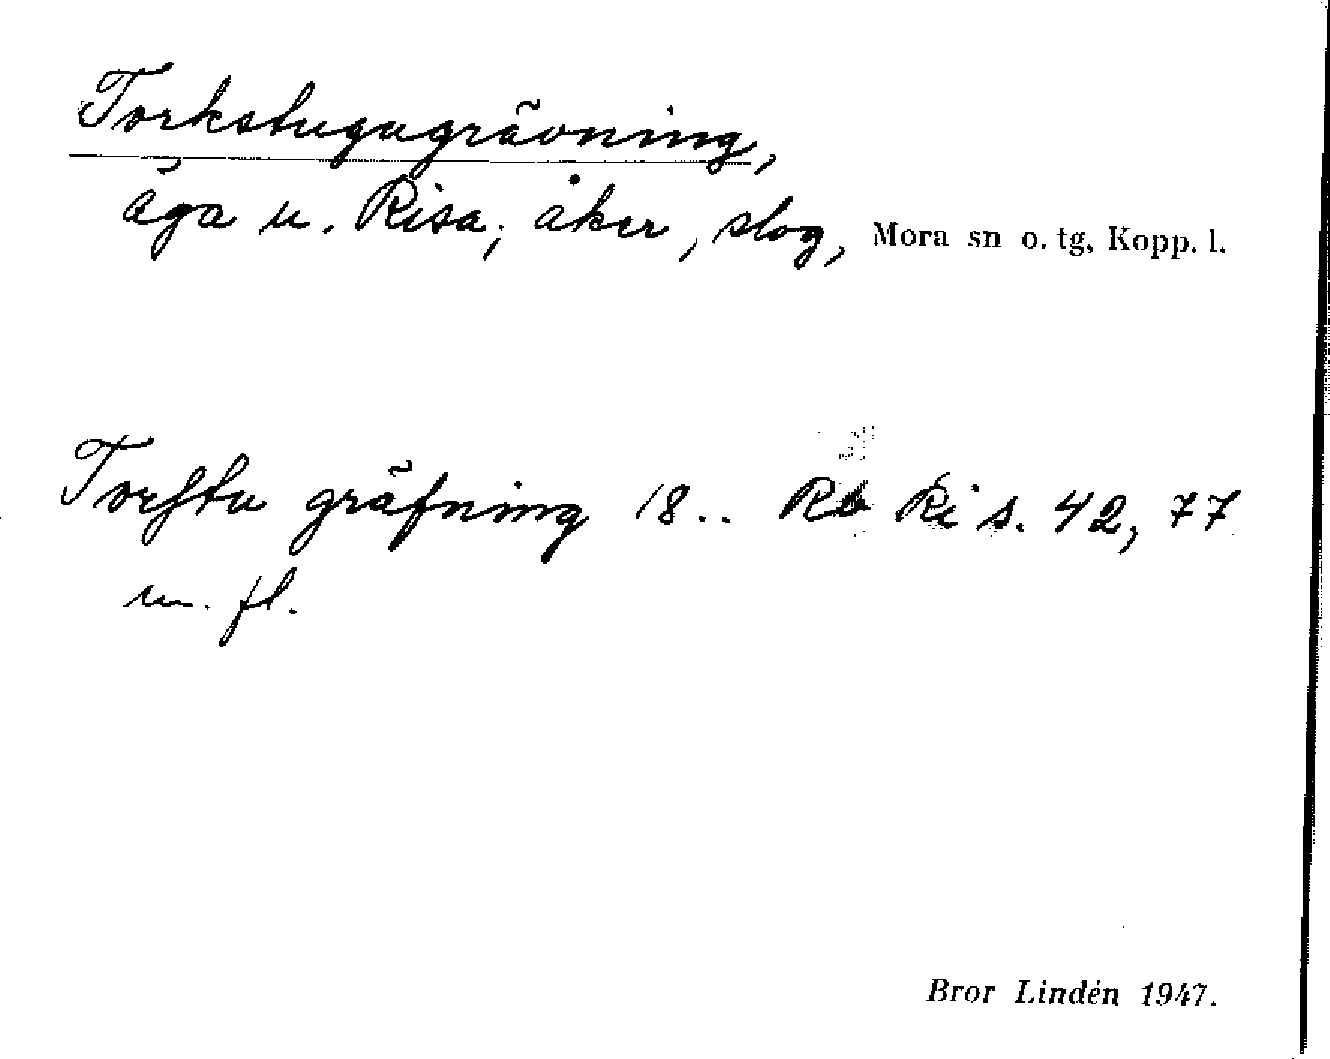 Torkstugugrävning,
äga u. Risa; åker, slog, Mora sn o. tg, Kopp. l.
Torkstu gräfning 18.. Rb Ri s. 42, 77
m. fl.
Bror Lindén 1947.